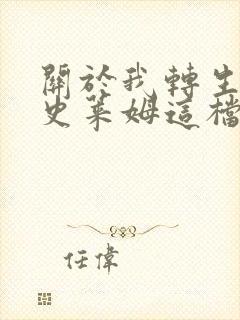 關於我轉生
史萊姆這檔
任偉